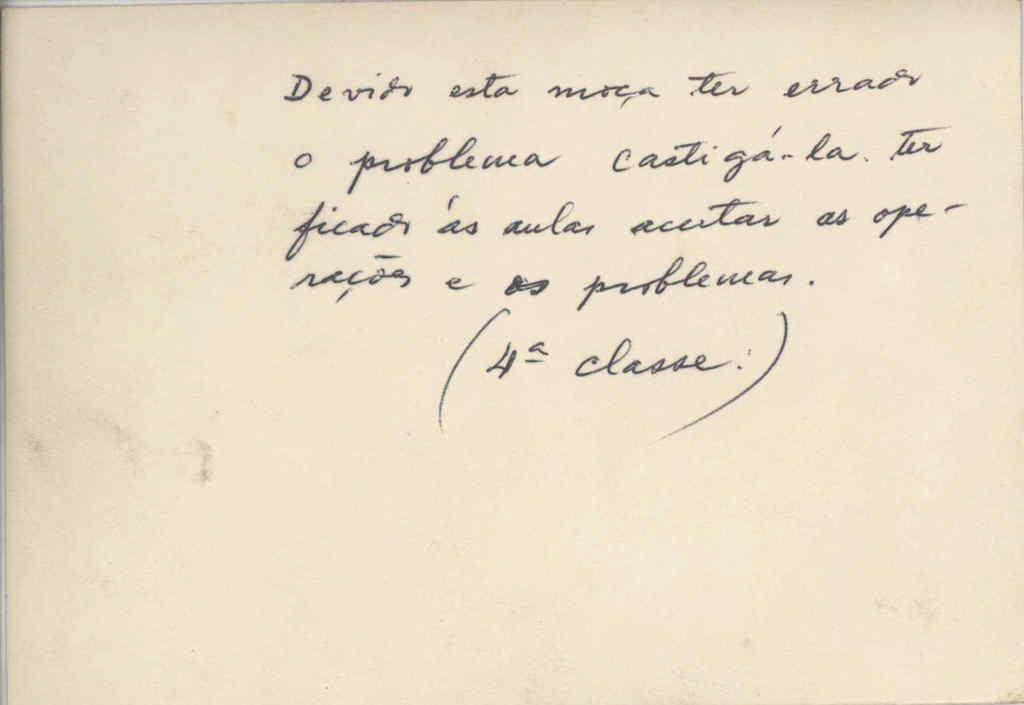 Devido esta moça ter errado
o problema castigá-la. ter
ficado às aulas acertar as ope-
rações e os problemas.
(4ª classe.)